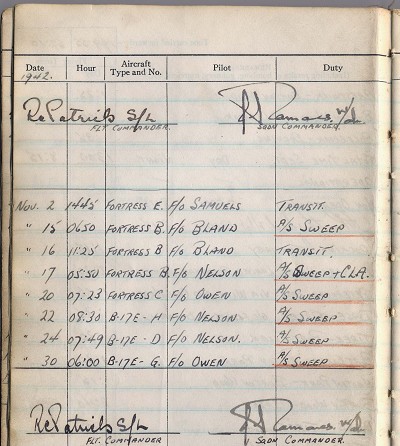 Date Hour Aircraft Type and No. Pilot Duty
1942.
R.C. Patrick S/L
FLT. COMMANDER. SQDN COMMANDER.
Nov. 2 1445 FORTRESS E. F/O SAMUELS TRANSIT.
" 15 0650 FORTRESS B. F/O BLAND A/S SWEEP
" 16 1125 FORTRESS B F/O BLAND TRANSIT.
" 17 0550 FORTRESS B. F/O NELSON A/S SWEEP + CLA.
" 20 07:23 FORTRESS C F/O OWEN A/S SWEEP
" 22 08:30 B-17E - H F/O NELSON A/S SWEEP
" 24 07:49 B-17E - D F/O NELSON. A/S SWEEP
" 30 06:00 B-17E - G. F/O OWEN A/S SWEEP
R.C. Patrick S/L
FLT. COMMANDER SQDN COMMANDER.